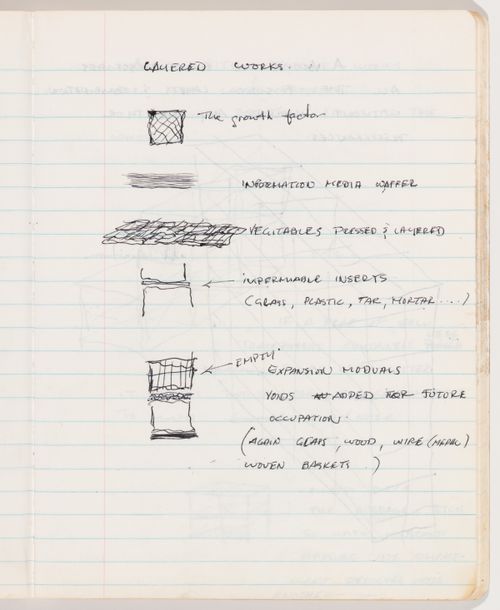 LAYERED WORKS.
The growth factor
INFORMATION MEDIA WAFFER
VEGITABLES PRESSED & LAYERED
IMPERMIABLE INSERTS
(GLASS, PLASTIC, TAR, MORTAR ....)
EMPTY
EXPANSION MODUALS
VOIDS ADDED FOR FUTURE
OCCUPATION.
(AGAIN GLASS, WOOD, WIRE (METAL)
WOVEN BASKETS .)